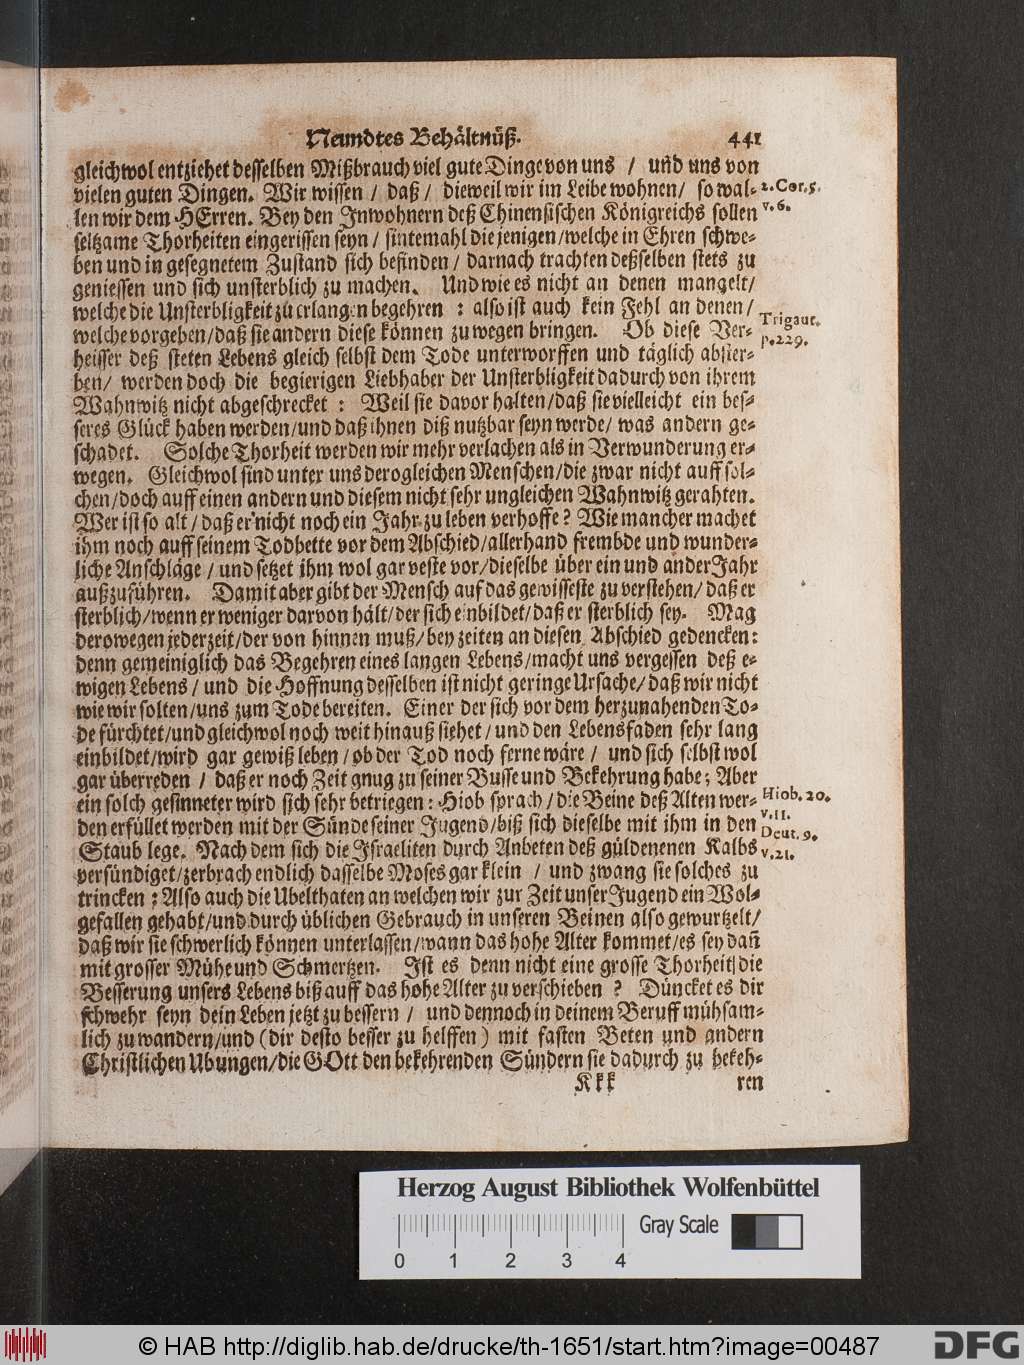 Neundtes Behältnüß. 441
gleichwol entziehet desselben Mißbrauch viel gute Dinge von uns / und uns von
vielen guten Dingen. Wir wissen / daß / dieweil wir im Leibe wohnen / so wal- 2. Cor. 5.
len wir dem HErren. Bey den Inwohnern deß Chinensischen Königreichs sollen v. 6.
seltzame Thorheiten eingerissen seyn / sintemahl die jenigen / welche in Ehren schwe-
ben und in gesegnetem Zustand sich befinden / darnach trachten deßselben stets zu
geniessen und sich unsterblich zu machen. Und wie es nicht an denen mangelt /
welche die Unsterbligkeit zu erlangen begehren : also ist auch kein Fehl an denen /
welche vorgeben / daß sie andern diese können zu wegen bringen. Ob diese Ver- Trigaut.
heisser deß steten Lebens gleich selbst dem Tode unterworffen und täglich abster- p. 229.
ben / werden doch die begierigen Liebhaber der Unsterbligkeit dadurch von ihrem
Wahnwitz nicht abgeschrecket : Weil sie davor halten / daß sie vielleicht ein bes-
seres Glück haben werden / und daß ihnen diß nutzbar seyn werde / was andern ge-
schadet. Solche Thorheit werden wir mehr verlachen als in Verwunderung er-
wegen. Gleichwol sind unter uns derogleichen Menschen / die zwar nicht auff sol-
chen / doch auff einen andern und diesem nicht sehr ungleichen Wahnwitz gerahten.
Wer ist so alt / daß er nicht noch ein Jahr zu leben verhoffe ? Wie mancher machet
ihm noch auff seinem Todbette vor dem Abschied / allerhand frembde und wunder-
liche Anschläge / und setzet ihm wol gar veste vor / dieselbe über ein und ander Jahr
außzuführen. Damit aber gibt der Mensch auf das gewisseste zu verstehen / daß er
sterblich / wenn er weniger darvon hält / der sich einbildet / daß er sterblich sey. Mag
derowegen jederzeit / der von hinnen muß / bey zeiten an diesen Abschied gedencken :
denn gemeiniglich das Begehren eines langen Lebens / macht uns vergessen deß e-
wigen Lebens / und die Hoffnung desselben ist nicht geringe Ursache / daß wir nicht
wie wir solten / uns zum Tode bereiten. Einer der sich vor dem herzunahenden To-
de fürchtet / und gleichwol noch weit hinauß siehet / und den Lebensfaden sehr lang
einbildet / wird gar gewiß leben / ob der Tod noch ferne wäre / und sich selbst wol
gar überreden / daß er noch Zeit gnug zu seiner Busse und Bekehrung habe ; Aber
ein solch gesinneter wird sich sehr betriegen : Hiob sprach / die Beine deß Alten wer- Hiob. 20.
den erfüllet werden mit der Sünde seiner Jugend / biß sich dieselbe mit ihm in den v. 11.
Staub lege. Nach dem sich die Israeliten durch Anbeten deß güldenenen Kalbs Deut. 9.
versündiget / zerbrach endlich dasselbe Moses gar klein / und zwang sie solches zu v. 21.
trincken : Also auch die Ubelthaten an welchen wir zur Zeit unser Jugend ein Wol-
gefallen gehabt / und durch üblichen Gebrauch in unseren Beinen also gewurtzelt /
daß wir sie schwerlich können unterlassen / wann das hohe Alter kommet / es sey dañ
mit grosser Mühe und Schmertzen. Ist es denn nicht eine grosse Thorheit / die
Besserung unsers Lebens biß auff das hohe Alter zu verschieben ? Düncket es dir
schwehr seyn dein Leben jetzt zu bessern / und dennoch in deinem Beruff mühsam-
lich zu wandern / und ( dir desto besser zu helffen ) mit fasten Beten und andern
Christlichen Ubungen / die GOtt den bekehrenden Sündern sie dadurch zu bekeh-
Kkk ren
Herzog August Bibliothek Wolfenbüttel
0 1 2 3 4 Gray Scale
© HAB http://diglib.hab.de/drucke/th-1651/start.htm?image=00487 DFG